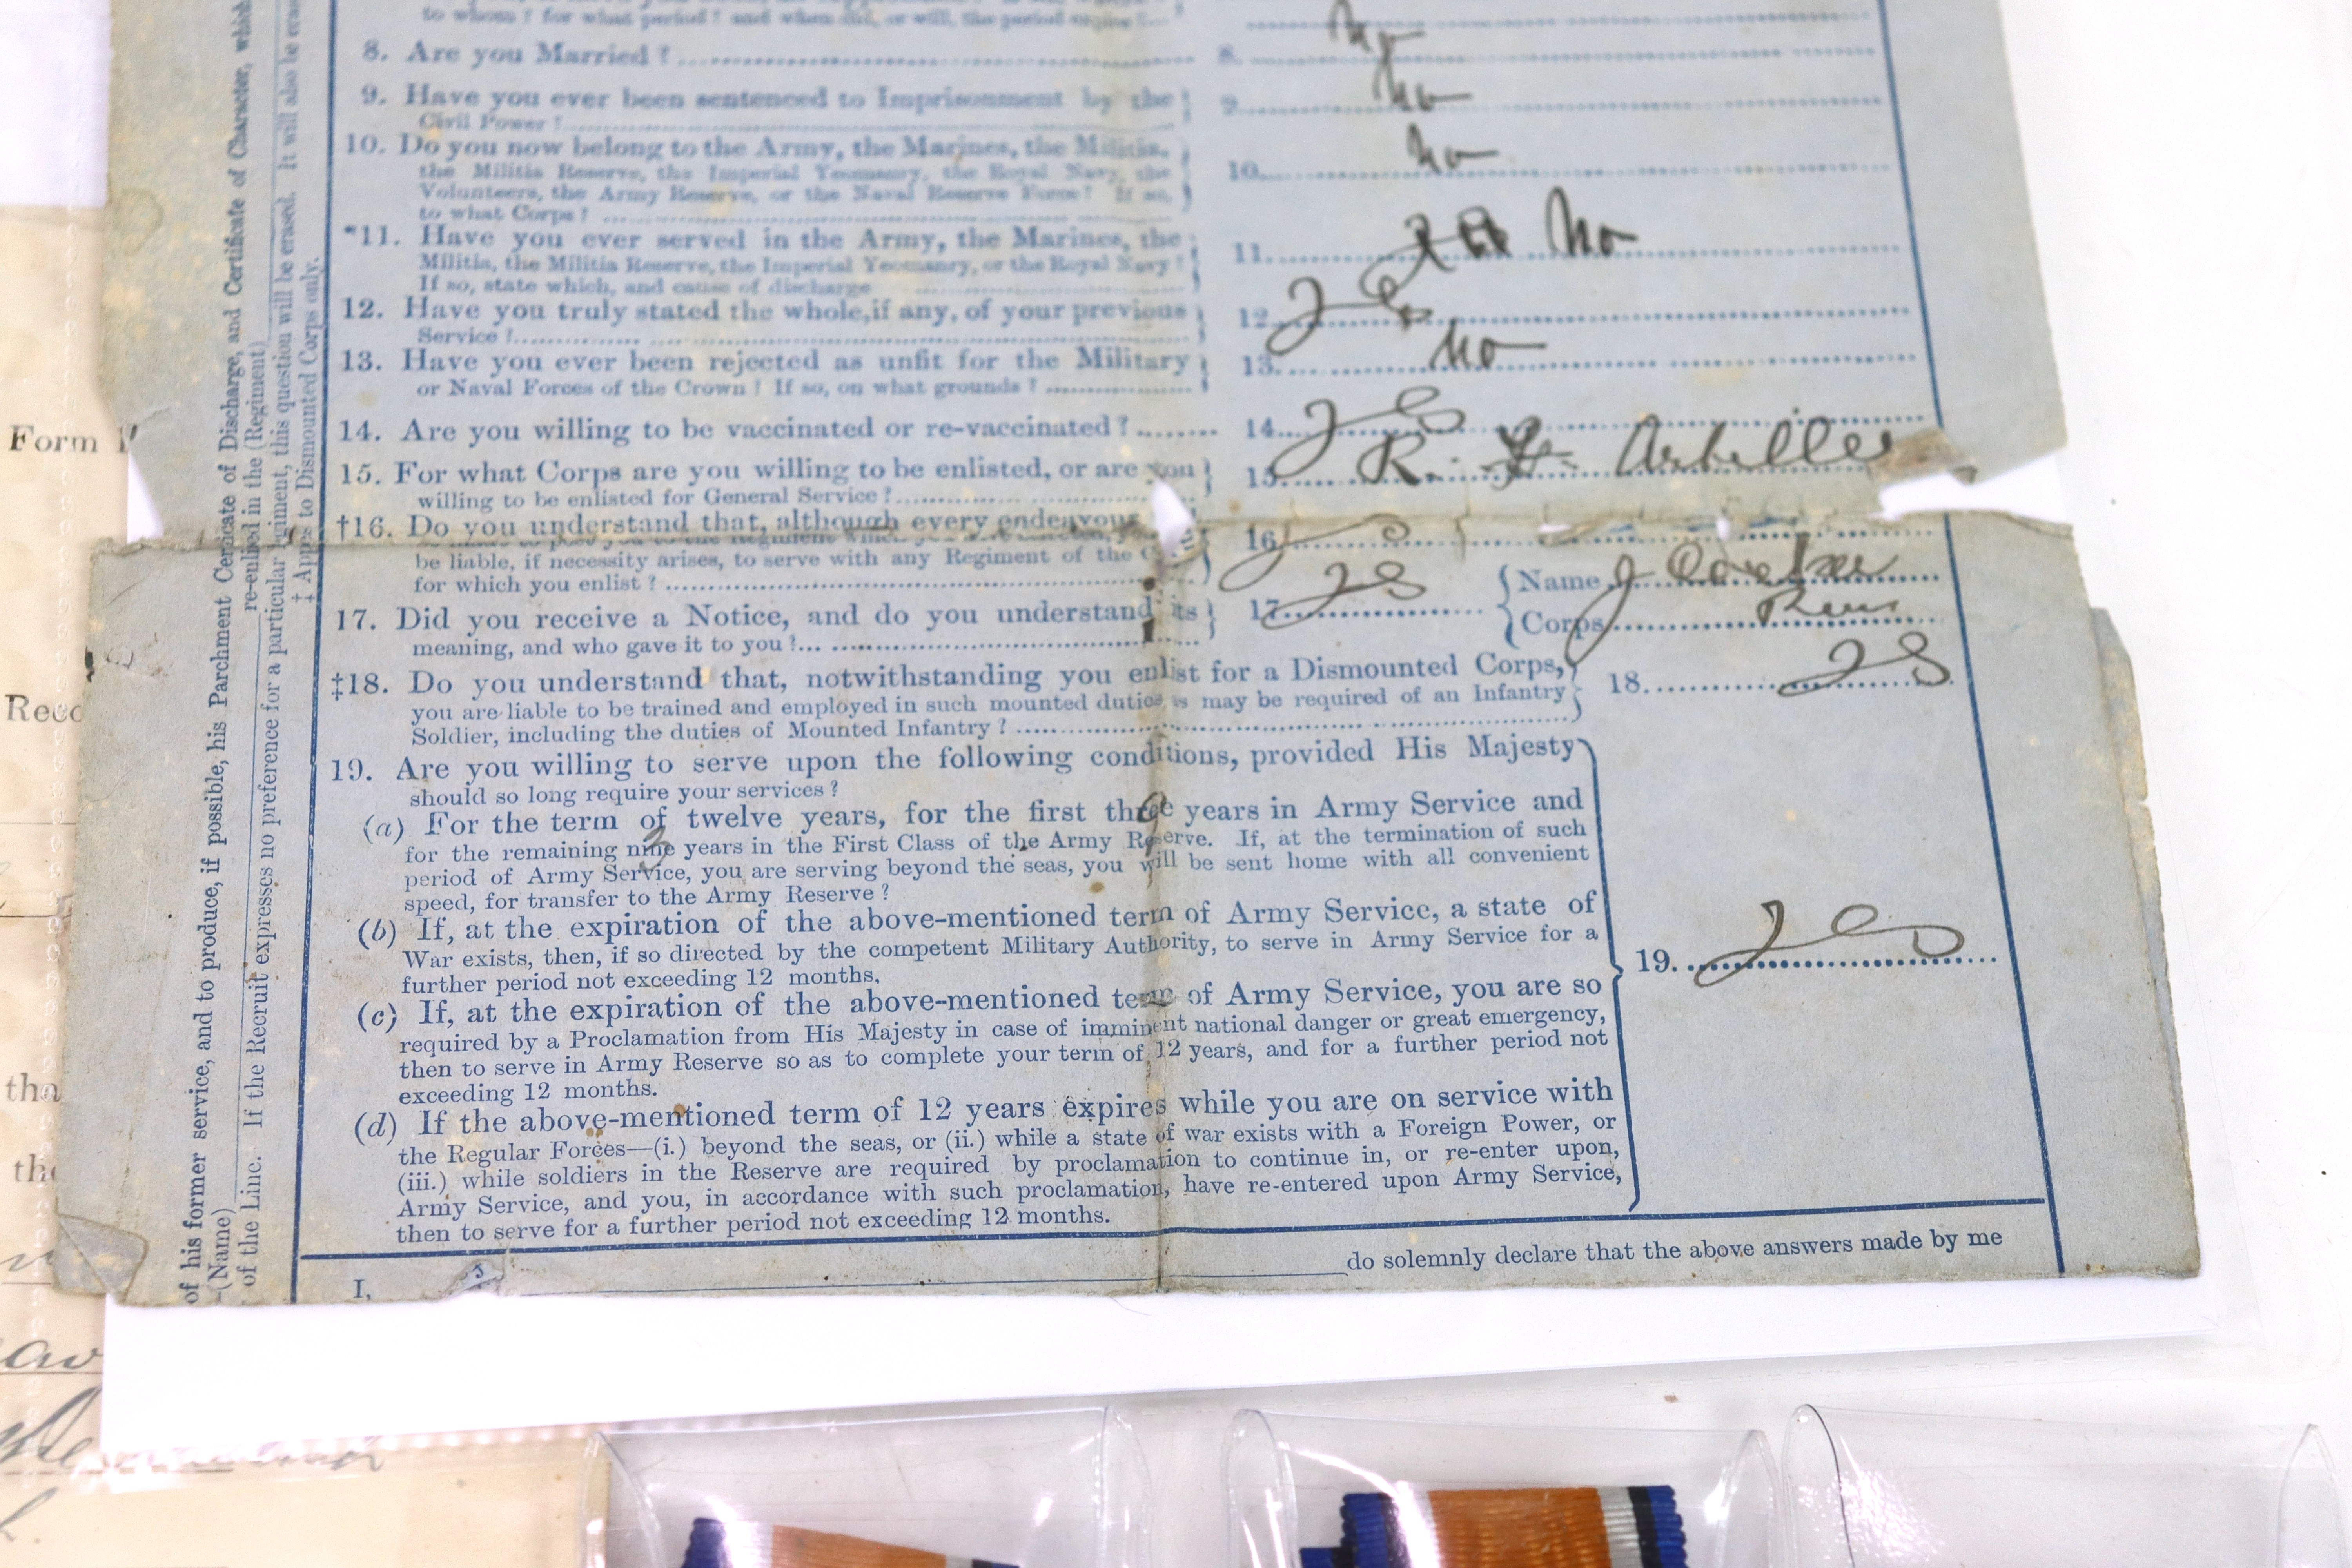 to whom? for what period? and when did, or will, the period expire?
8. Are you Married? 8. No
9. Have you ever been sentenced to Imprisonment by the 9. No
Civil Power?
10. Do you now belong to the Army, the Marines, the Militia, 10. No
the Militia Reserve, the Imperial Yeomanry, the Royal Navy, the
Volunteers, the Army Reserve, or the Naval Reserve Force? If so,
to what Corps?
*11. Have you ever served in the Army, the Marines, the 11. No
Militia, the Militia Reserve, the Imperial Yeomanry, or the Royal Navy?
If so, state which, and cause of discharge
12. Have you truly stated the whole, if any, of your previous 12. Yes
Service?
13. Have you ever been rejected as unfit for the Military 13. No
or Naval Forces of the Crown? If so, on what grounds?
14. Are you willing to be vaccinated or re-vaccinated? 14. Yes
15. For what Corps are you willing to be enlisted, or are you 15. R. Artillery
willing to be enlisted for General Service?
†16. Do you understand that, although every endeavour 16. Yes
be liable, if necessity arises, to serve with any Regiment of the
for which you enlist?
17. Did you receive a Notice, and do you understand its 17. Yes { Name J
meaning, and who gave it to you? Corps
‡18. Do you understand that, notwithstanding you enlist for a Dismounted Corps, 18. Yes
you are liable to be trained and employed in such mounted duties as may be required of an Infantry
Soldier, including the duties of Mounted Infantry?
19. Are you willing to serve upon the following conditions, provided His Majesty
should so long require your services?
(a) For the term of twelve years, for the first three years in Army Service and
for the remaining nine years in the First Class of the Army Reserve. If, at the termination of such
period of Army Service, you are serving beyond the seas, you will be sent home with all convenient
speed, for transfer to the Army Reserve?
(b) If, at the expiration of the above-mentioned term of Army Service, a state of
War exists, then, if so directed by the competent Military Authority, to serve in Army Service for a
further period not exceeding 12 months.
19. Yes
(c) If, at the expiration of the above-mentioned term of Army Service, you are so
required by a Proclamation from His Majesty in case of imminent national danger or great emergency,
then to serve in Army Reserve so as to complete your term of 12 years, and for a further period not
exceeding 12 months.
(d) If the above-mentioned term of 12 years expires while you are on service with
the Regular Forces—(i.) beyond the seas, or (ii.) while a state of war exists with a Foreign Power, or
(iii.) while soldiers in the Reserve are required by proclamation to continue in, or re-enter upon,
Army Service, and you, in accordance with such proclamation, have re-entered upon Army Service,
then to serve for a further period not exceeding 12 months.
I, do solemnly declare that the above answers made by me
of his former service, and to produce, if possible, his Parchment Certificate of Discharge, and Certificate of Character, which
(Name) re-enlisted in the (Regiment)
of the Line. If the Recruit expresses no preference for a particular regiment, this question will be erased. It will also be
‡ Applies to Dismounted Corps only.
Form
Reco
tha
the